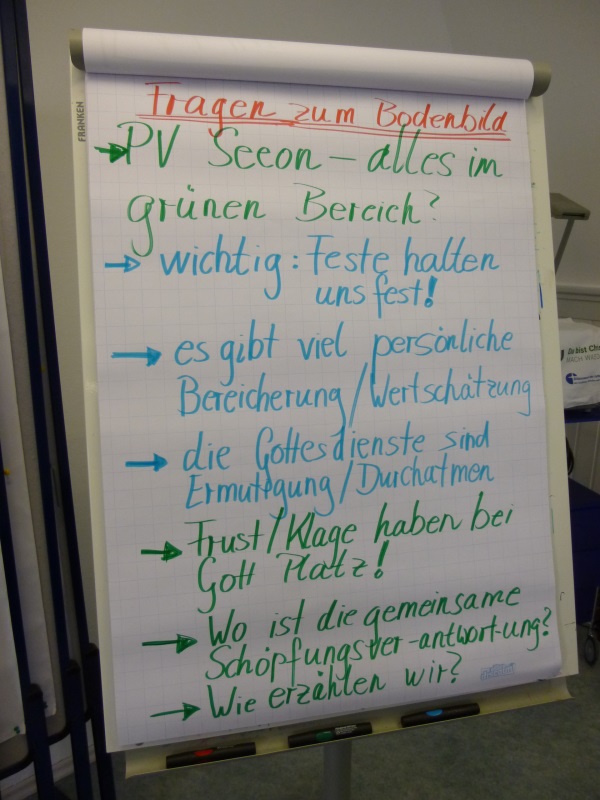 Fragen zum Bodenbild
→ PV Seeon – alles im
grünen Bereich?
→ wichtig: Feste halten
uns fest!
→ es gibt viel persönliche
Bereicherung/Wertschätzung
→ die Gottesdienste sind
Ermutigung/Durchatmen
→ Frust/Klage haben bei
Gott Platz!
→ Wo ist die gemeinsame
Schöpfungsver-antwort-ung?
→ Wie erzählen wir?
FRANKEN